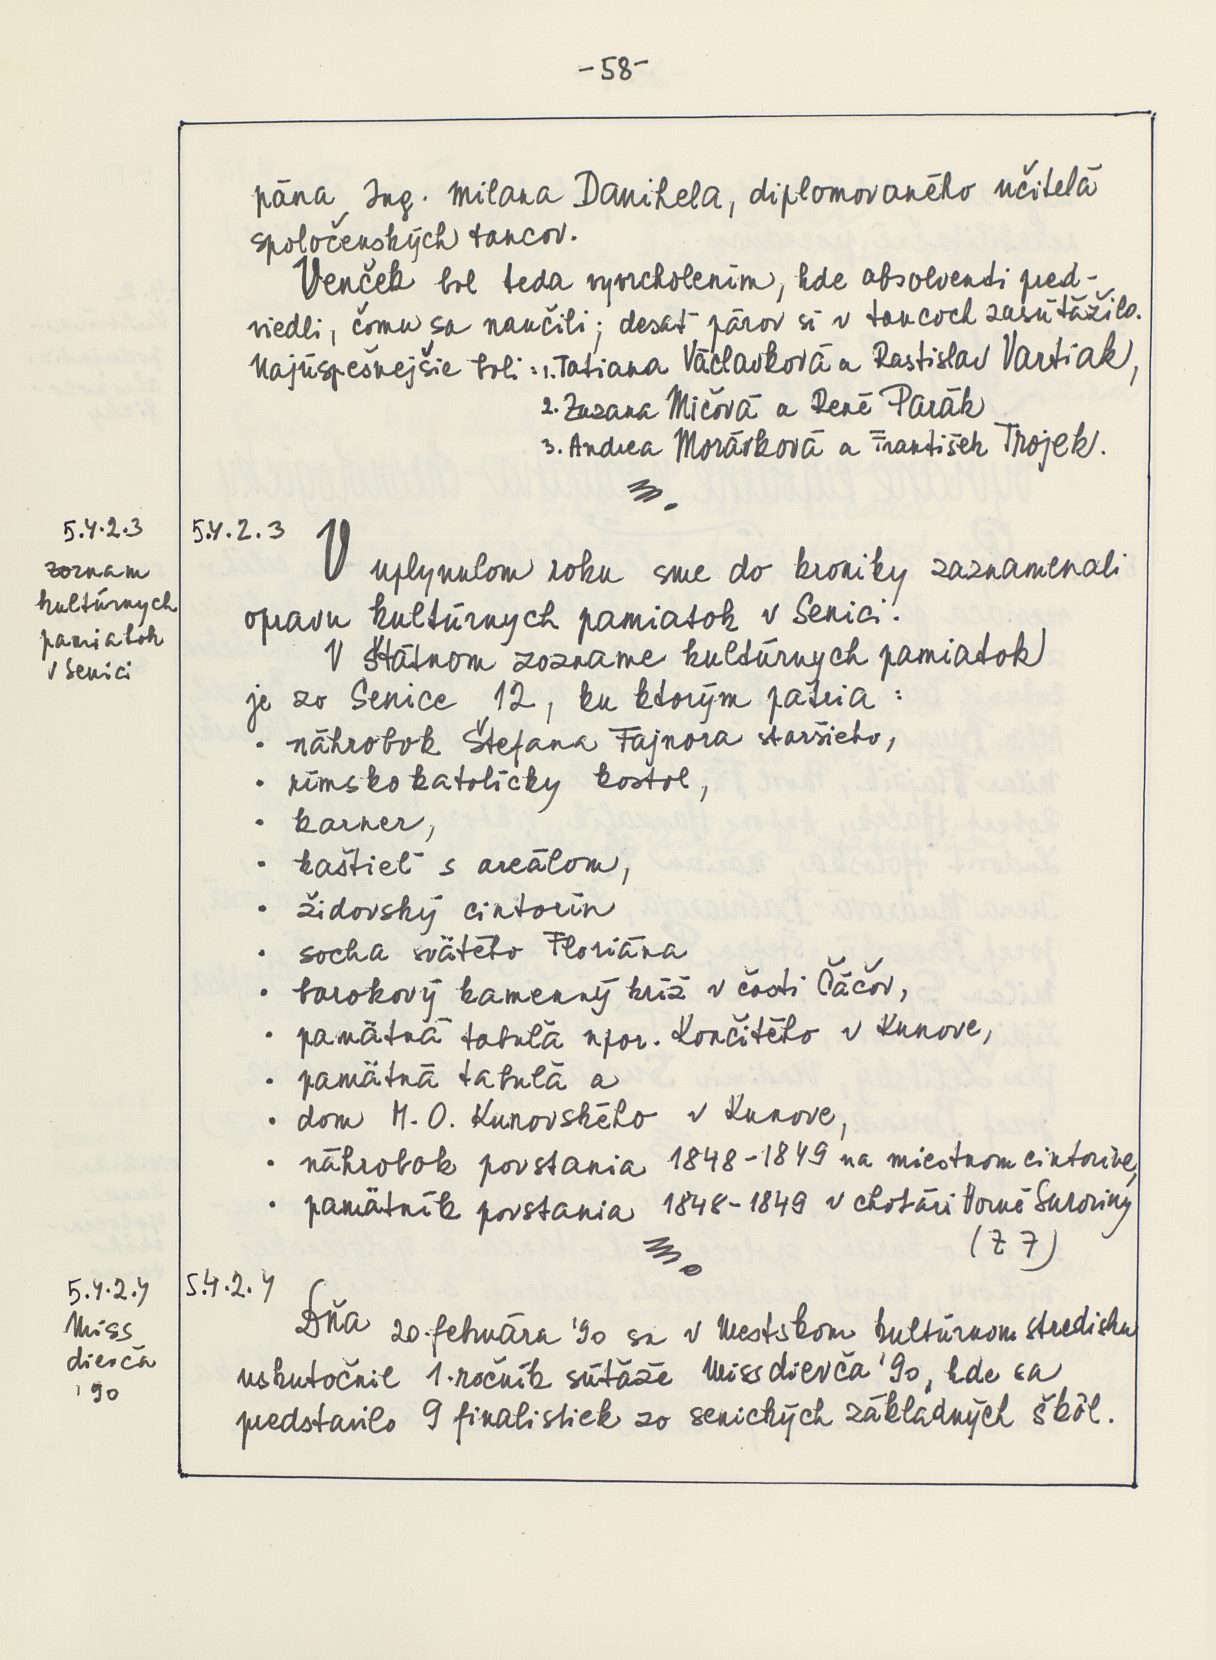 -58-
pána Ing. Milana Danihela, diplomovaného učitelá
spoločenských tancov.
Venček bol teda vyvrcholením, kde absolventi pred-
viedli, čomu sa naučili; desať párov si v tancoch zasúťažilo.
Najúspešnejšie boli: 1. Tatiana Václavková a Rastislav Vartiak,
2. Zuzana Mičová a René Parák
3. Andrea Morávková a František Trojek.
5.4.2.3
zoznam
kultúrnych
pamiatok
v Senici
5.4.2.3 V uplynulom roku sme do kroniky zaznamenali
opravu kultúrnych pamiatok v Senici.
V Štátnom zozname kultúrnych pamiatok
je zo Senice 12, ku ktorým patria:
· náhrobok Štefana Fajnora staršieho,
· rímskokatolícky kostol,
· karner,
· kaštieľ s areálom,
· židovský cintorín
· socha svätého Floriána
· barokový kamenný kríž v časti Čáčov,
· pamätná tabuľa npor. Končitého v Kunove,
· pamätná tabuľa a
· dom M. O. Kunovského v Kunove,
· náhrobok povstania 1848-1849 na miestnom cintoríne,
· pamätník povstania 1848-1849 v chotári Horné Suroviny
(Z 7)
5.4.2.4
Miss
dievča
'90
5.4.2.4 Dňa 20. februára '90 sa v Mestskom kultúrnom stredisku
uskutočnil 1. ročník súťaže Miss dievča '90, kde sa
predstavilo 9 finalistiek zo senických základných škôl.